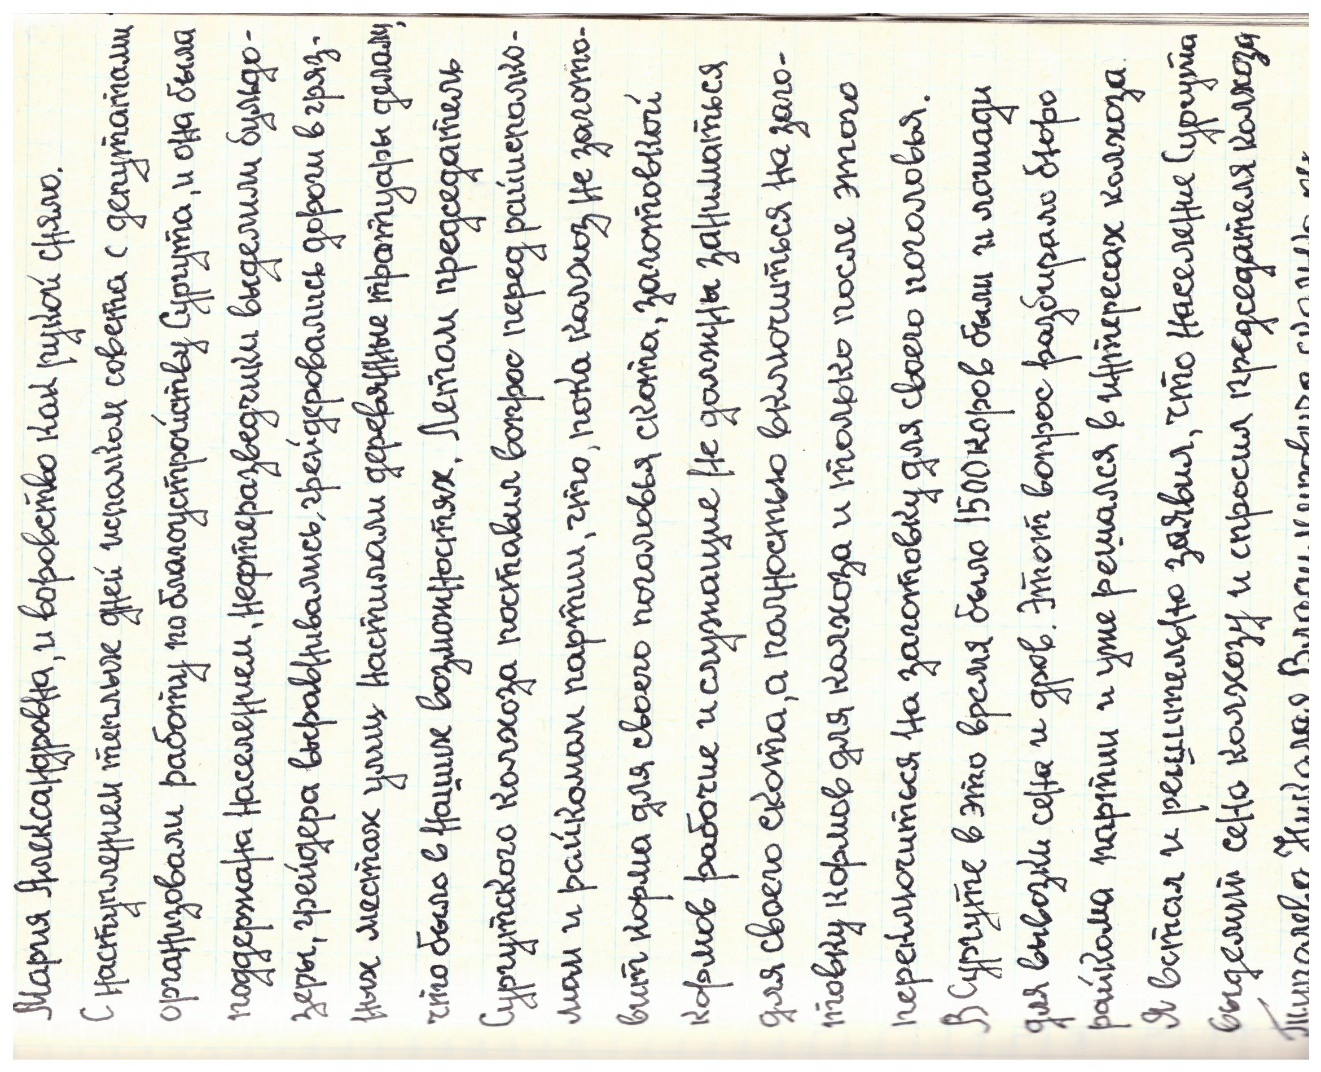 Мария Александровна, и воровство как рукой сняло.
С наступлением теплых дней исполком совета с депутатами
организовали работу по благоустройству Сургута, и она была
поддержана населением, нефтеразведчики выделили бульдо-
зеры, грейдера выравнивались, грейдеровались дороги в гряз-
ных местах улиц настилали деревянные тротуары делали,
что было в наших возможностях. Летом председатель
Сургутского колхоза поставил вопрос перед райисполко-
мом и райкомом партии, что, пока колхоз не загото-
вит корма для своего поголовья скота, заготовкой
кормов рабочие и служащие не должны заниматься
для своего скота, а полностью включиться на заго-
товку кормов для колхоза и только после этого
переключиться на заготовку для своего поголовья.
В Сургуте в это время было 1500 коров были и лошади
для вывозки сена и дров. Этот вопрос разбирало бюро
райкома партии и уже решался в интересах колхоза.
Я встал и решительно заявил, что население Сургута
выделит сено колхозу и спросил председателя колхоза
Николая